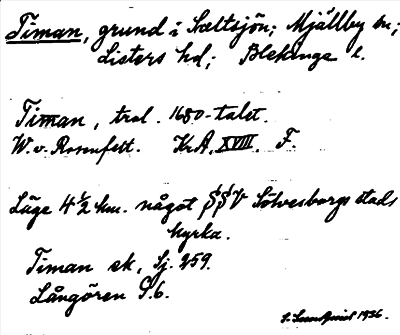 Timan, grund i Saltsjön; Mjällby sn;
Listers hd; Blekinge l.
Timan, trol. 1680-talet.
W. v. Rosenfelt. KrA, XVIII. F.
Läge 4 ½ km. något SSV Sölvesborgs stads
kyrka.
Timan ek, Sj. 259.
Långören S.6.
1936.